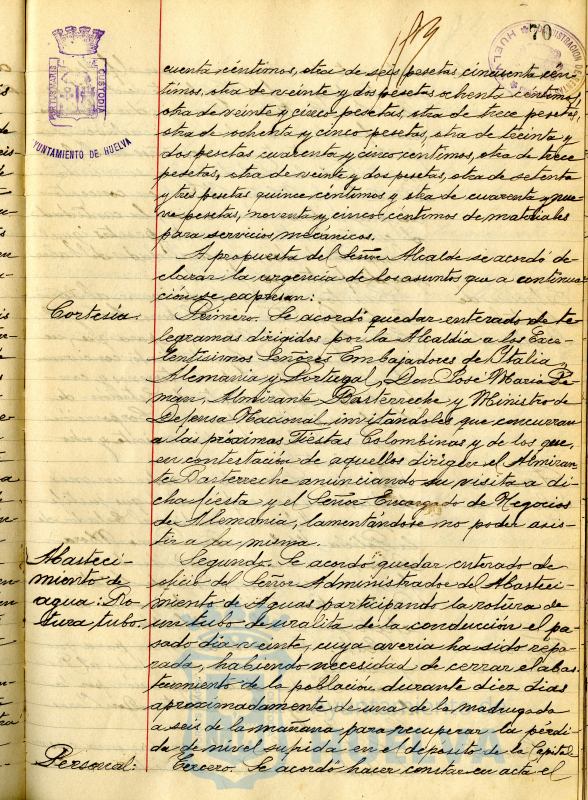 70
AYUNTAMIENTO DE HUELVA
PORTUS MARIS
CUSTODIA
cuenta céntimos, otra de seis pesetas cincuenta cen-
timos, otra de veinte y dos pesetas ochenta céntimos,
otra de veinte y cinco pesetas, otra de trece pesetas,
otra de ochenta y cinco pesetas, otra de treinta y
dos pesetas cuarenta y cinco céntimos, otra de trece
pesetas, otra de veinte y dos pesetas, otra de setenta
y tres pesetas quince céntimos y otra de cuarenta y nue-
ve pesetas, noventa y cinco céntimos de materiales
para servicios mecánicos.
A propuesta del Señor Alcalde se acordó de-
clarar la urgencia de los asuntos que a continua-
ción se expresan:
Cortesía.
Primero. Se acordó quedar enterado de te-
legramas dirigidos por la Alcaldía a los Exce-
lentísimos Señores Embajadores de Italia,
Alemania y Portugal, Don José Maria Pe-
man, Almirante Basterreche y Ministro de
Defensa Nacional, invitándoles que concurran
a las próximas Fiestas Colombinas y de los que,
en contestación de aquellos dirigen el Almiran-
te Basterreche anunciando su visita a di-
cha fiesta y el Señor Encargado de Negocios
de Alemania, lamentándose no poder asis-
tir a la misma.
Abasteci-
miento de
agua: Ro-
tura, tubo.
Segundo. Se acordó quedar enterado de
oficio del Señor Administrador del Abasteci-
miento de Aguas participando la rotura de
un tubo de uralita de la conducción el pa-
sado dia veinte, cuya averia ha sido repa-
rada, habiendo necesidad de cerrar el abas-
tecimiento de la población durante diez dias
aproximadamente de una de la madrugada
a seis de la mañana para recuperar la pérdi-
da de nivel sufrida en el depósito de la Capital.
Personal:
Tercero. Se acordó hacer constar en acta el
HUELVA